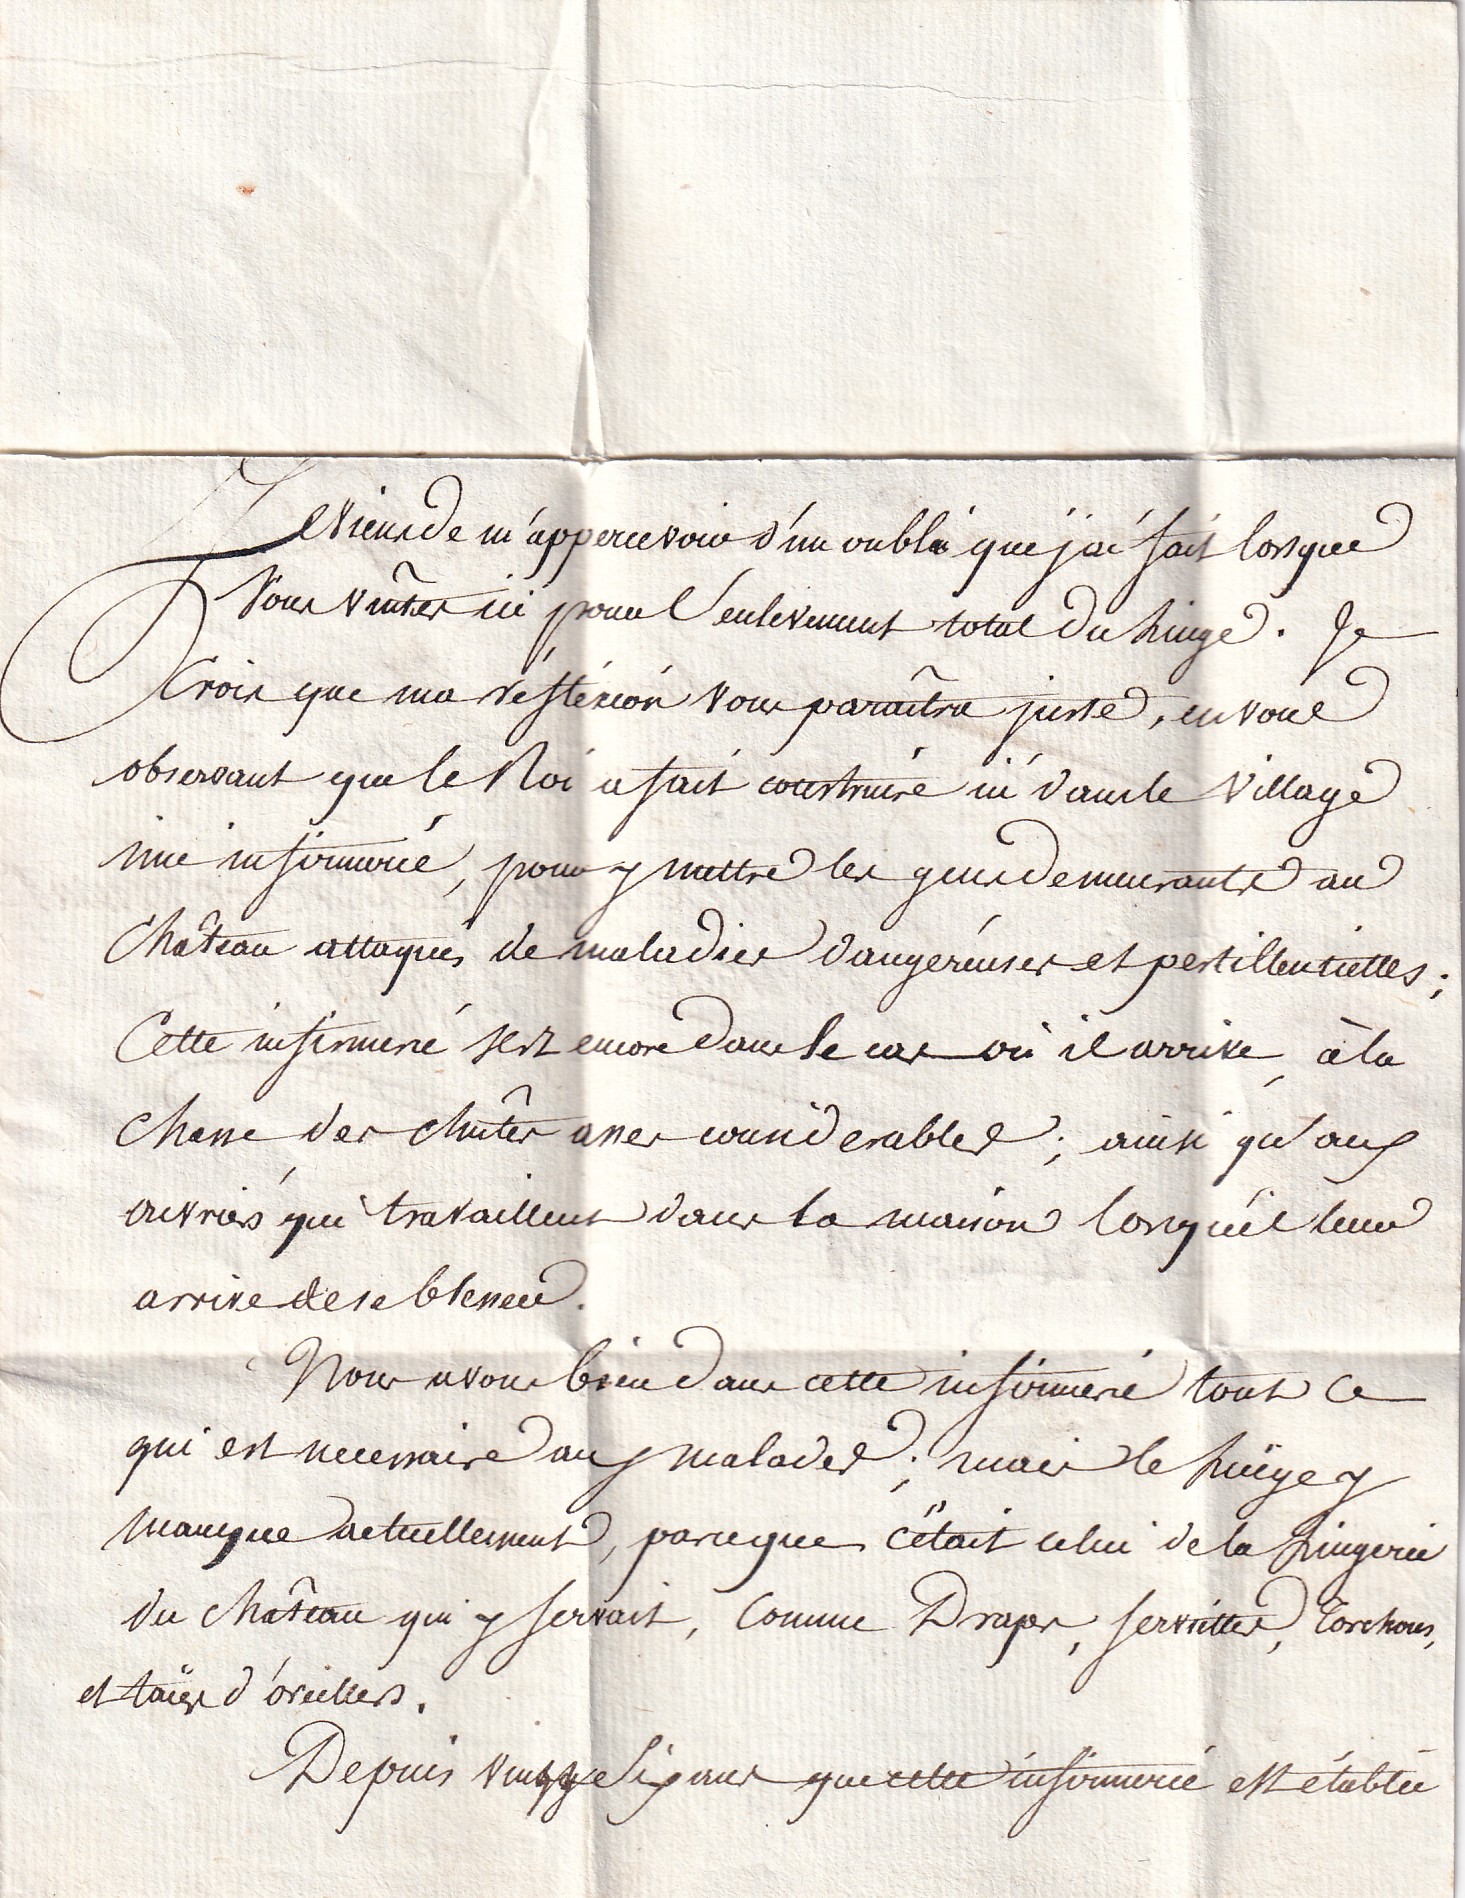 Je viens de m'appercevoir d'un oubli que j'ai fait lorsque
Vous vintes ici pour l'enlevement total du Linge. Je
Crois que ma réfléxion vous paraîtra juste, en vous
observant que le Roi a fait construire ici dans le Village
une infirmerie, pour y mettre les gens demeurants au
Château attaqués de maladies dangéreuses et pestillentielles;
Cette infirmerie sert encore dans le cas où il arrive, à la
Chasse des chûtes assez considerables; ainsi qu'aux
ouvriers qui travaillent dans la maison lorsqu'il leur
arrive de se blesser.
Nous avons bien dans cette infirmerie tout ce
qui est necessaire aux malades; mais le Linge y
manque actuellement, parceque c'était celui de la Lingerie
du Château qui y servait, Comme Draps, serviettes, Torchons,
et taïes d'oreillers.
Depuis Six ans que cette infirmerie est établie